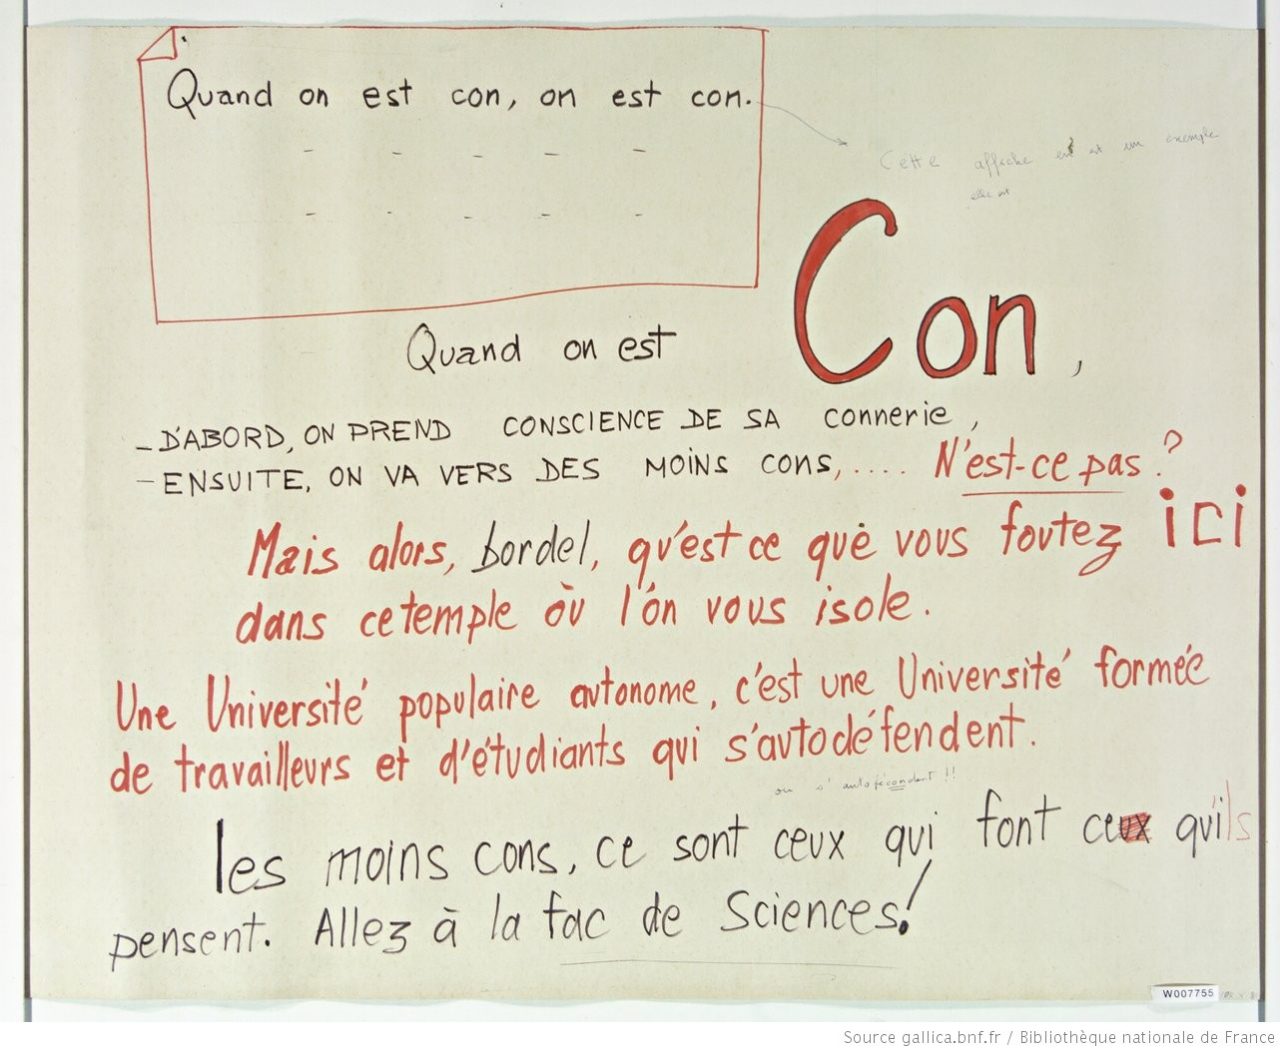 Quand on est con, on est con.
Cette affiche est un exemple
Quand on est Con,
- D'ABORD, ON PREND CONSCIENCE DE SA connerie,
- ENSUITE, ON VA VERS DES MOINS CONS,.... N'est-ce pas ?
Mais alors, bordel, qu'est ce que vous foutez ici
dans ce temple où l'on vous isole.
Une Université populaire autonome, c'est une Université formée
de travailleurs et d'étudiants qui s'autodéfendent.
ou s'autofécondent !!
les moins cons, ce sont ceux qui font ce qu'ils
pensent. Allez à la fac de Sciences!
W007755
Source gallica.bnf.fr / Bibliothèque nationale de France